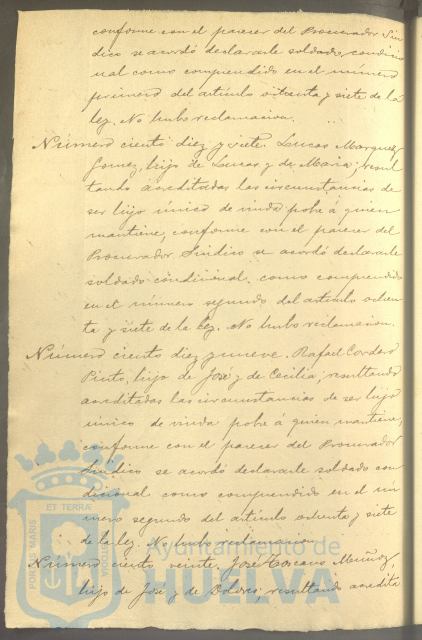 conforme con el parecer del Procurador Sin
dico se acordó declararle soldado condicio
nal como comprendido en el número
primero del articulo ochenta y siete de la
ley. No hubo reclamacion.
Número ciento diez y siete. Lucas Marquez
Gomez, hijo de Lucas y de Maria; resul
tando acreditadas las circunstancias de
ser hijo único de viuda pobre á quien
mantiene, conforme con el parecer del
Procurador Sindico se acordó declararle
soldado condicional, como comprendido
en el número segundo del articulo ochen
ta y siete de la ley. No hubo reclamacion.
Número ciento diez y nueve. Rafael Cordero
Pinto, hijo de José y de Cecilia; resultando
acreditadas las circunstancias de ser hijo
único de viuda pobre á quien mantiene,
conforme con el parecer del Procurador
Sindico se acordó declararle soldado con
dicional como comprendido en el nú
mero segundo del articulo ochenta y siete
de la ley. No hubo reclamacion.
Número ciento veinte. José Toscano Muñoz,
hijo de José y de Dolores; resultando acredita
PORTUS MARIS
ET TERRÆ
Ayuntamiento de
HUELVA